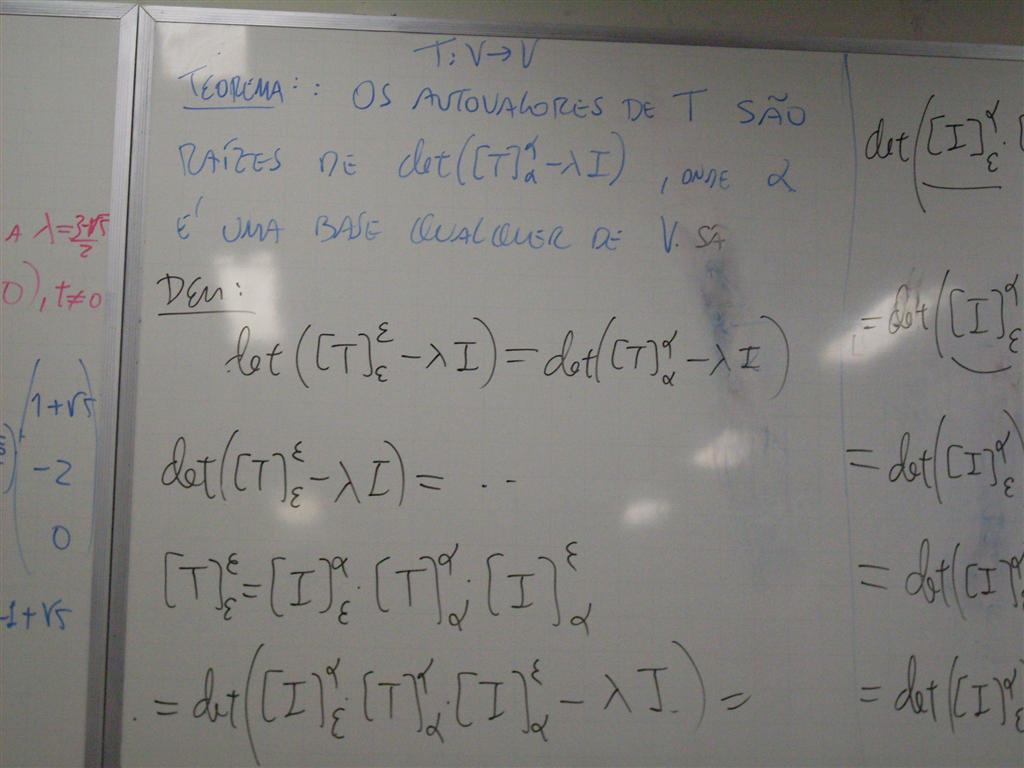 A λ=3-√5/2
0), t≠0
1+√5
-2
0
-1+√5
T: V→V
TEOREMA:: OS AUTOVALORES DE T SÃO
RAÍZES DE det([T]^α_α-λI), ONDE α
É UMA BASE QUALQUER DE V.
DEM:
det([T]^ε_ε-λI)=det([T]^α_α-λI)
det([T]^ε_ε-λI)= ..
[T]^ε_ε=[I]^α_ε.[T]^α_α.[I]^ε_α
=det([I]^α_ε.[T]^α_α.[I]^ε_α-λI)=
det([I]^α_ε.[
=det([I]^α_ε
=det([I]^α_ε
=det([I]^α
=det([I]^α_ε